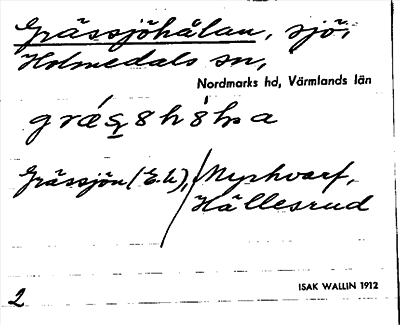 Grässjöhålan, sjö i
Holmedals sn,
Nordmarks hd, Värmlands län
Grässjön (E.k), / Nyrhvarf,
Hällesrud
2 ISAK WALLIN 1912